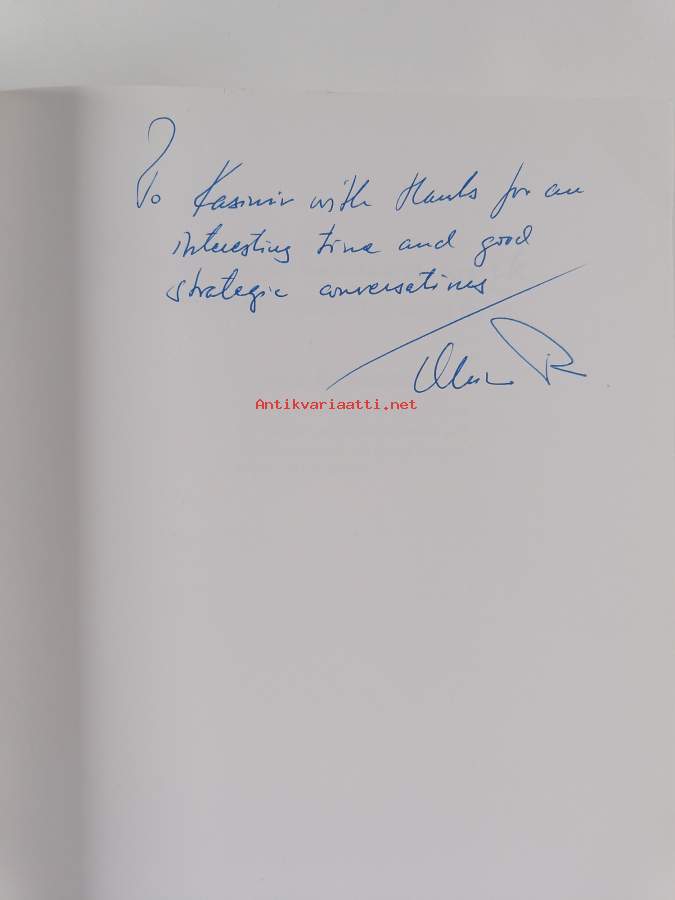 To Kasimir with thanks for an
interesting time and good
strategic conversations
Antikvariaatti.net